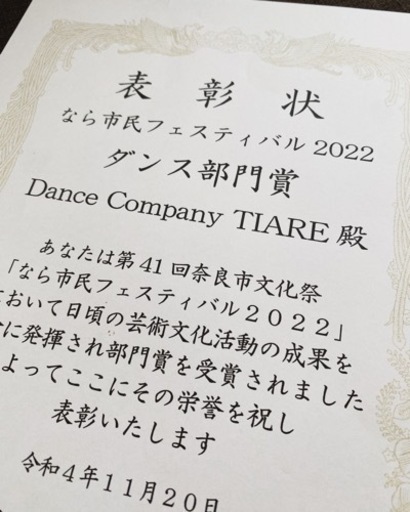 表彰状
なら市民フェスティバル 2022
ダンス部門賞
Dance Company TIARE 殿
あなたは第41回奈良市文化祭
「なら市民フェスティバル2022」
おいて日頃の芸術文化活動の成果を
に発揮され部門賞を受賞されました
よってここにその栄誉を祝し
表彰いたします
令和4年11月20日